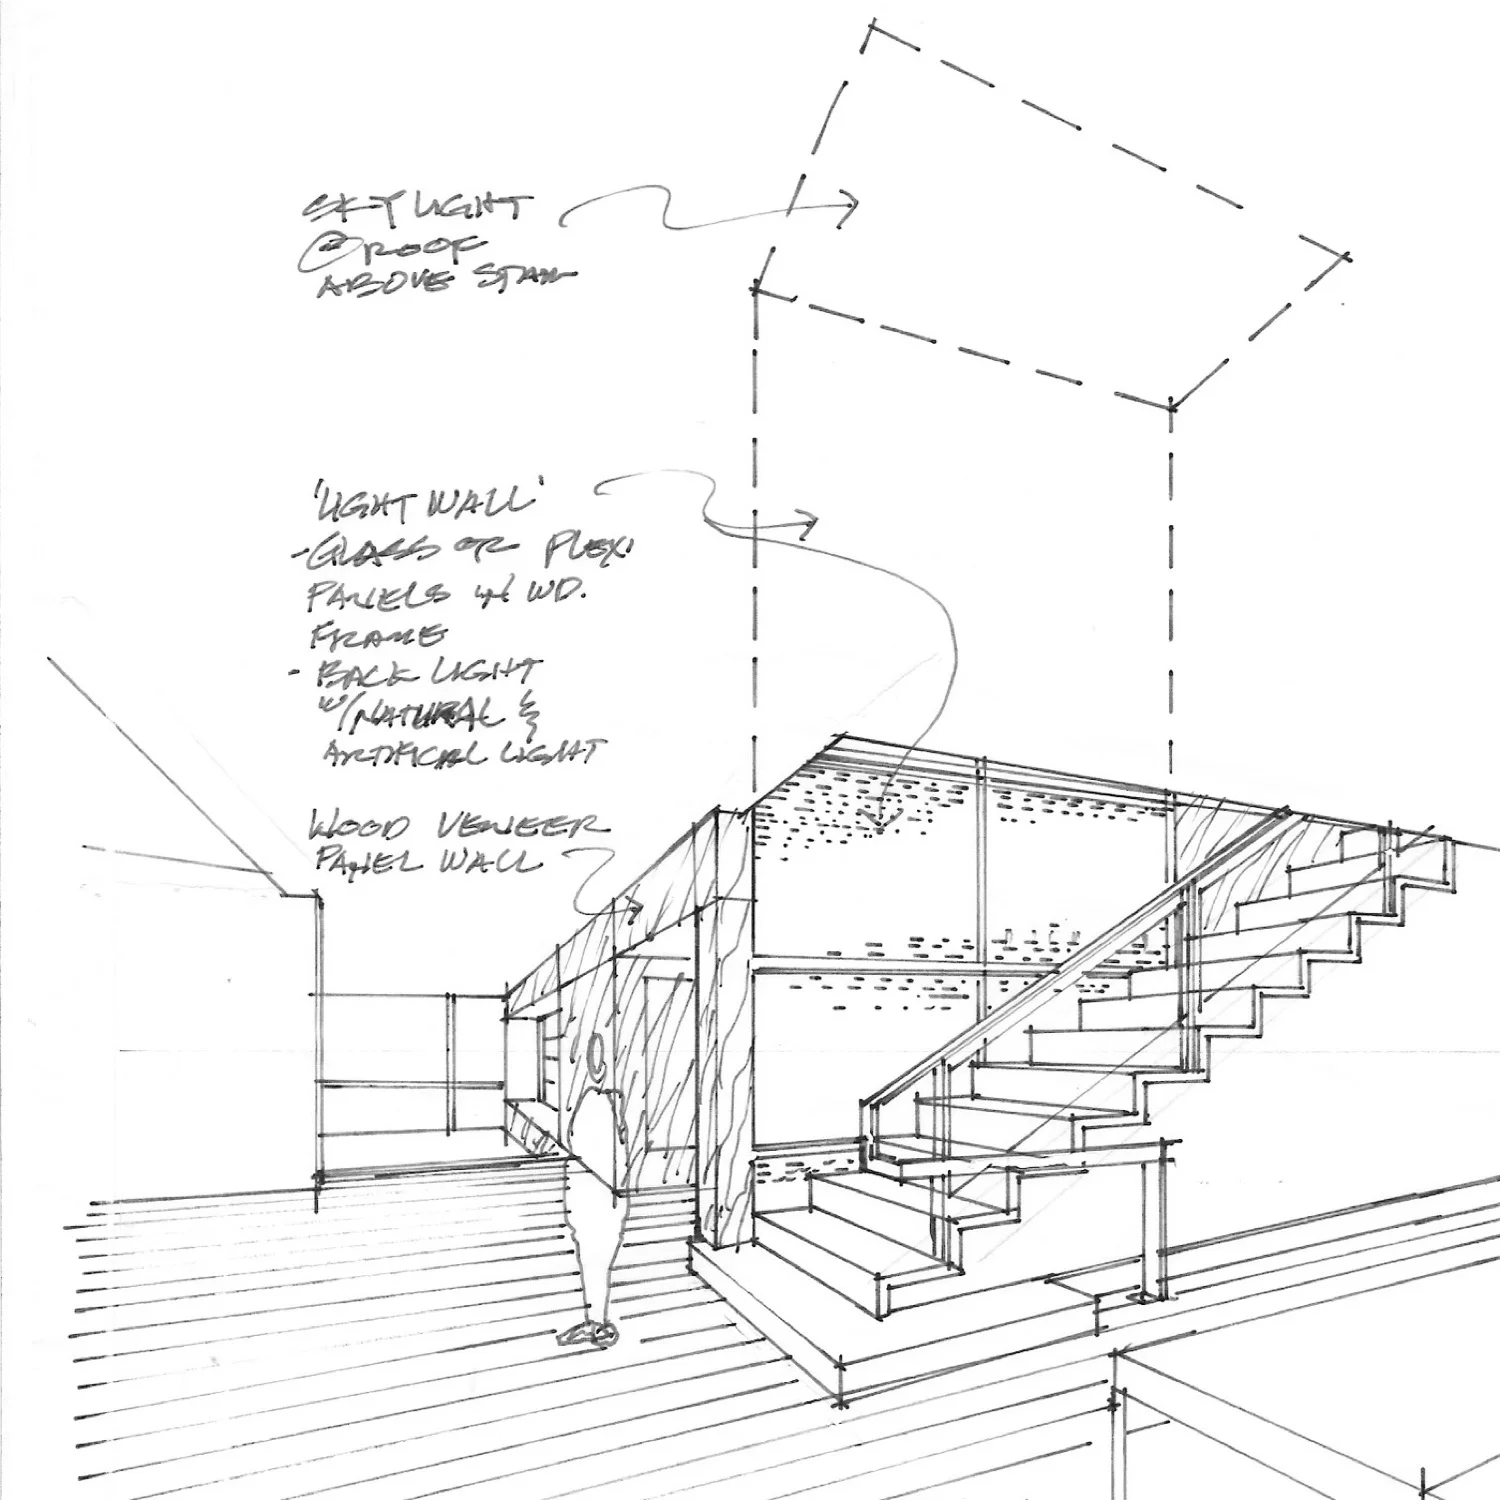 SKYLIGHT
@ ROOF
ABOVE STAIR
'LIGHT WALL'
- GLASS OR PLEXI
PANELS w/ WD.
FRAME
- BACK LIGHT
w/ NATURAL &
ARTIFICIAL LIGHT
WOOD VENEER
PANEL WALL